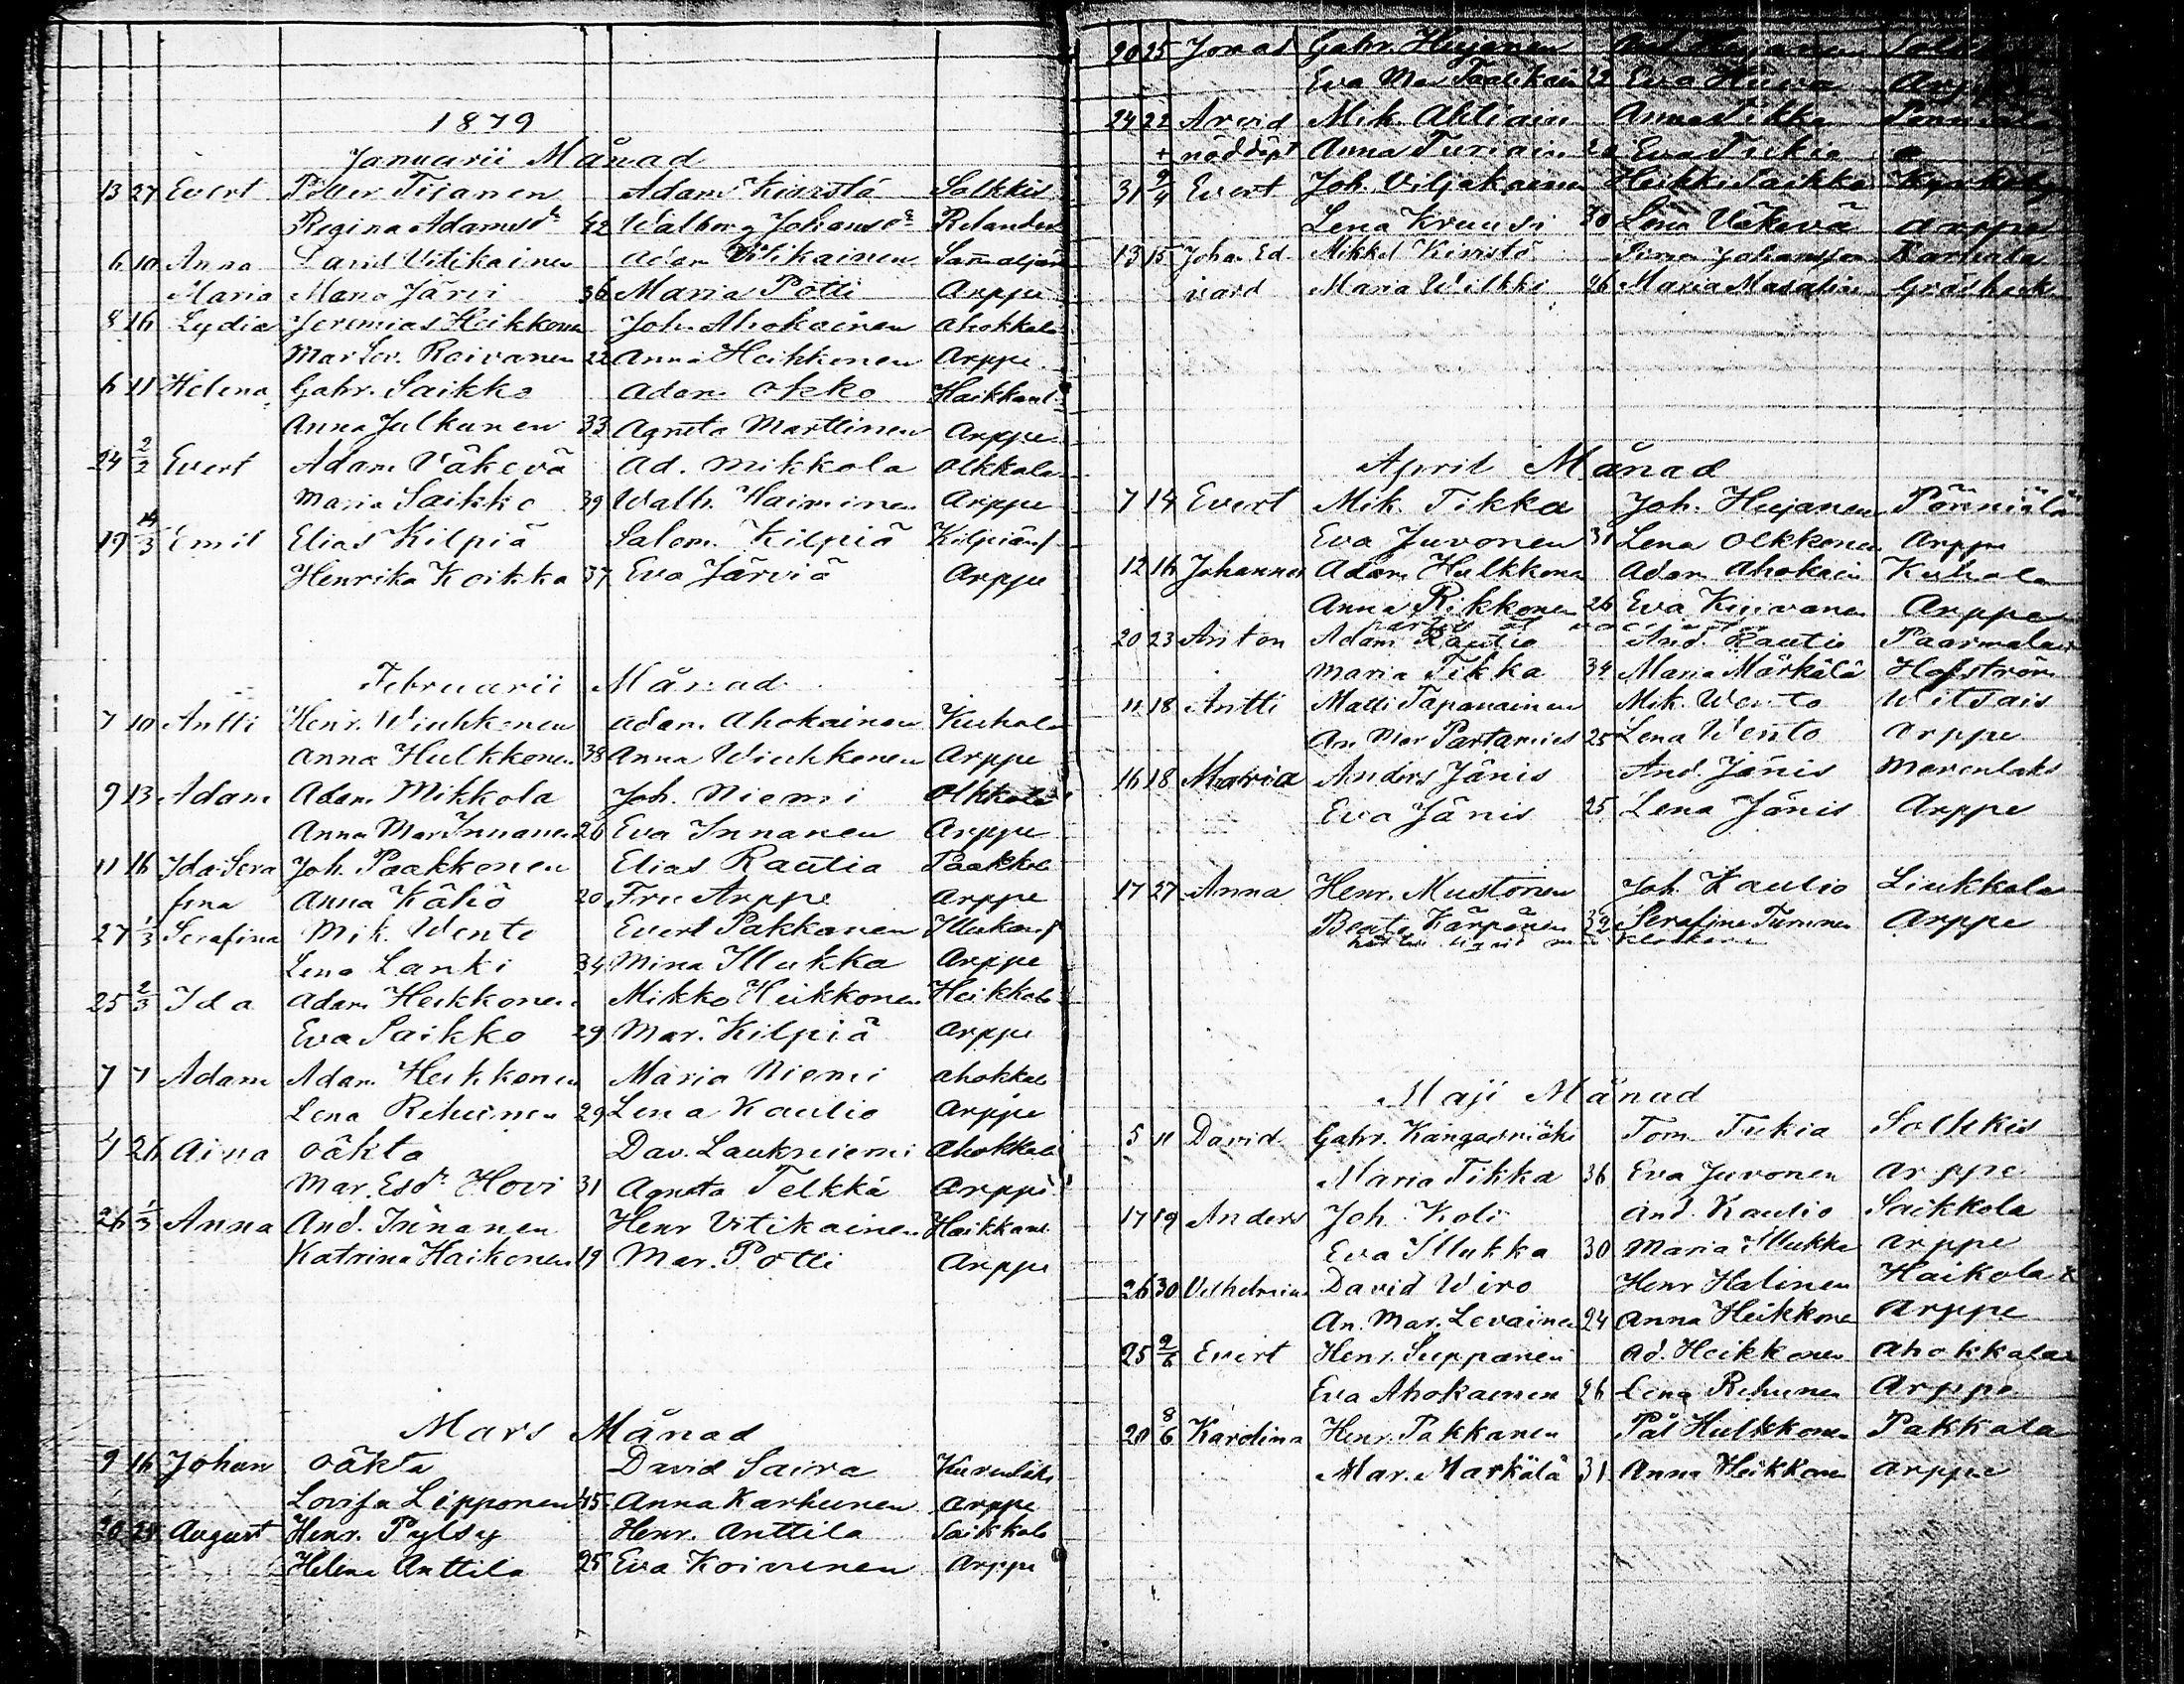 1879
Januarii Månad
13 27 Evert Petter Tijanen Adam Kivistö Salkkis
Regina Adamsdr 42 Walborg Johansdr Relander
6 10 Anna David Vitikainen Adam Vitikainen
Maria Maria Järvi 36 Maria Potti Arppe
8 16 Lydia Jeremias Heikkonen Joh. Ahokainen Ahokkala
Mar Lov. Roivanen 22 Anna Heikkonen Arppe
6 11 Helena Gabr. Saikko Adam Okko Haikkanl
Anna Julkunen 33 Agneta Marttinen Arppe
24 2/2 Evert Adam Väkevä Ad. Mikkola Olkkala
Maria Saikko 39 Walb. Haiminen Arppe
19 14/3 Emil Elias Kilpiä Salom. Kilpiä Kilpiänj
Henrika Koikka 37 Eva Järviä Arppe
Februarii Månad
7 10 Antti Henr. Wiuhkonen Adam Ahokainen Kuhala
Anna Hulkkonen 38 Anna Wiuhkonen Arppe
9 13 Adam Adam Mikkola Joh. Niemi Olkkala
Anna Mar Innanen 26 Eva Innanen Arppe
11 16 Ida Sera Joh. Paakkonen Elias Rautia Paakkol
fina Anna Kähö 20 Fru Arppe Arppe
27 1/3 Serafina Mik. Wento Evert Pakkanen
Lena Lanki 34 Mina Illukka Arppe
25 2/3 Ida Adam Heikkonen Mikko Heikkonen Heikkala
Eva Saikko 29 Mar. Kilpiä Arppe
7 7 Adam Adam Heikkonen Maria Niemi Ahokkal
Lena Rehunen 29 Lena Kautio Arppe
4 26 Aina oäkta Dav. Laukniemi Ahokkala
Mar. Esdr Hovi 31 Agneta Telkkä Arppe
26 1/3 Anna And. Innanen Henr Vitikainen Haikkanl
Katrina Haikonen 19 Mar. Potti Arppe
Mars Månad
9 16 Johan oäkta David Saira
Lovisa Lipponen 45 Anna Karhunen Arppe
20 28 August Henr. Pylsy Henr. Anttila Saikkala
Helena Anttila 25 Eva Koivunen Arppe
20 25 Jonas Gabr. Hujanen
Eva Mar 22 Eva
24 22 Arvid Mik. Ahtiain Anna Tikka
+ nöddöpt Anna Turiain Eva Tukia
31 9/4 Evert Joh. Viljakainen Heikki Saikko
Lena Kruusi 30 Lena Väkevä Arppe
13 15 Johan Ed Mikkel Kivistö Simon Johansson
vard Maria Wilkki 26 Maria Masalin
April Månad
7 14 Evert Mik. Tikka Joh. Hujanen Pönniälä
Eva Juvonen 31 Lena Olkkonen Arppe
12 16 Johannes Adam Hulkkonen Adam Ahokain Kuhala
Anna Rikkonen 26 Eva Arppe
20 23 Anton Adam Rautio And. Rautio Paarmala
Maria Tikka 34 Maria Märkälä Hofström
11 18 Antti Matti Tapanainen Mik. Wento Witsais
An. Mar Partamies 25 Lena Wento Arppe
16 18 Maria Anders Jänis And. Jänis Merenlaks
Eva Jänis 25 Lena Jänis Arppe
17 27 Anna Henr. Mustonen Joh. Kautio Liukkala
Beata Kärpänen 32 Serafina Turunen Arppe
Maji Månad
5 11 David Gabr. Kangasmäki Tom Tukia Solkkis
Maria Tikka 36 Eva Juvonen Arppe
17 19 Anders Joh. Koli And. Kautio Saikkola
Eva Illukka 30 Maria Illukka Arppe
26 30 Vilhelmina David Wiro Henr Halinen Haikola
An. Mar. Levainen 24 Anna Heikkone Arppe
25 2/6 Evert Henr. Suppanen Ad. Heikkonen Ahokkala
Eva Ahokainen 26 Lena Rehunen Arppe
20 8/6 Karolina Henr. Pakkanen Pål Hulkkonen Pakkala
Mar. Markälä 31 Anna Heikkonen Arppe